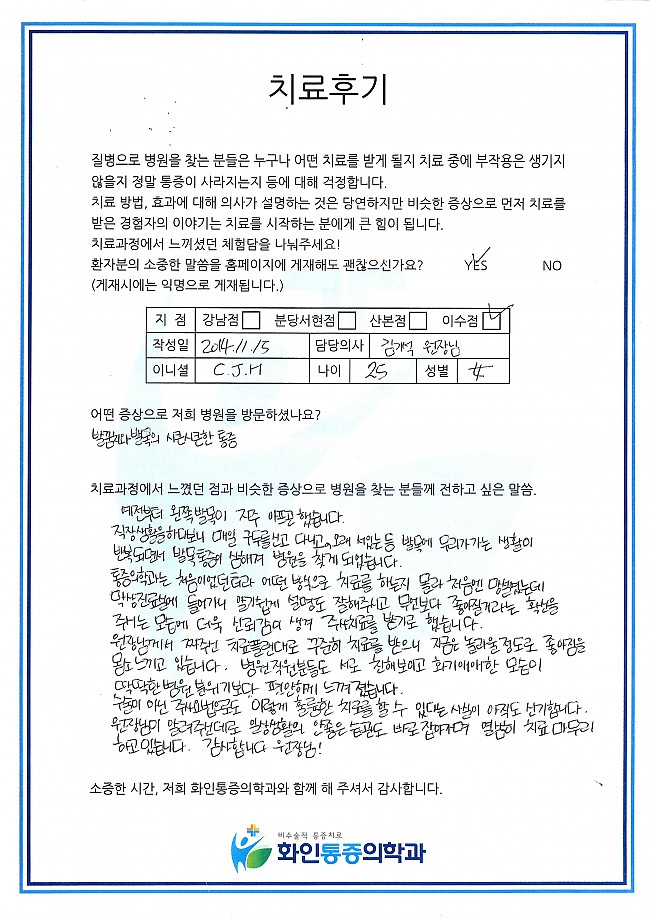 치료후기
질병으로 병원을 찾는 분들은 누구나 어떤 치료를 받게 될지 치료 중에 부작용은 생기지
않을지 정말 통증이 사라지는지 등에 대해 걱정합니다.
치료 방법, 효과에 대해 의사가 설명하는 것은 당연하지만 비슷한 증상으로 먼저 치료를
받은 경험자의 이야기는 치료를 시작하는 분에게 큰 힘이 됩니다.
치료과정에서 느끼셨던 체험담을 나눠주세요!
환자분의 소중한 말씀을 홈페이지에 게재해도 괜찮으신가요? YES NO
(게재시에는 익명으로 게재됩니다.)
지 점 강남점 분당서현점 산본점 이수점
작성일 2014.11.15 담당의사 김개석 원장님
이니셜 C.J.H 나이 25 성별 女
어떤 증상으로 저희 병원을 방문하셨나요?
발꿈치와 발목의 시큰시큰한 통증
치료과정에서 느꼈던 점과 비슷한 증상으로 병원을 찾는 분들께 전하고 싶은 말씀.
예전부터 왼쪽발목이 자주 아프곤 했습니다.
직장생활을 하다보니 매일 구두를 신고 다니고, 오래 서있는 등 발목에 무리가가는 생활이
반복되면서 발목통증이 심해져 병원을 찾게 되었습니다.
통증의학과는 처음이었던터라 어떤 방식으로 치료를 하는지 몰라 처음엔 망설였는데
막상진료실에 들어가니 알기쉽게 설명도 잘해주시고 무엇보다 좋아질거라는 확신을
주시는 모습에 더욱 신뢰감이 생겨 주사치료를 받기로 했습니다.
원장님께서 짜주신 치료플랜대로 꾸준히 치료를 받으니 지금은 놀라울정도로 좋아짐을
몸소 느끼고 있습니다. 병원직원분들도 서로 친해보이고 화기애애한 모습이
딱딱한 병원 분위기보다 편안하게 느껴졌습니다.
수술이 아닌 주사요법으로도 이렇게 훌륭한 치료를 할 수 있다는 사실이 아직도 신기합니다.
원장님이 알려주신대로 일상생활의 안좋은 습관도 바로 잡아가며 열심히 치료 마무리
하고있습니다. 감사합니다 원장님!
소중한 시간, 저희 화인통증의학과와 함께 해 주셔서 감사합니다.
비수술적 통증치료
화인통증의학과